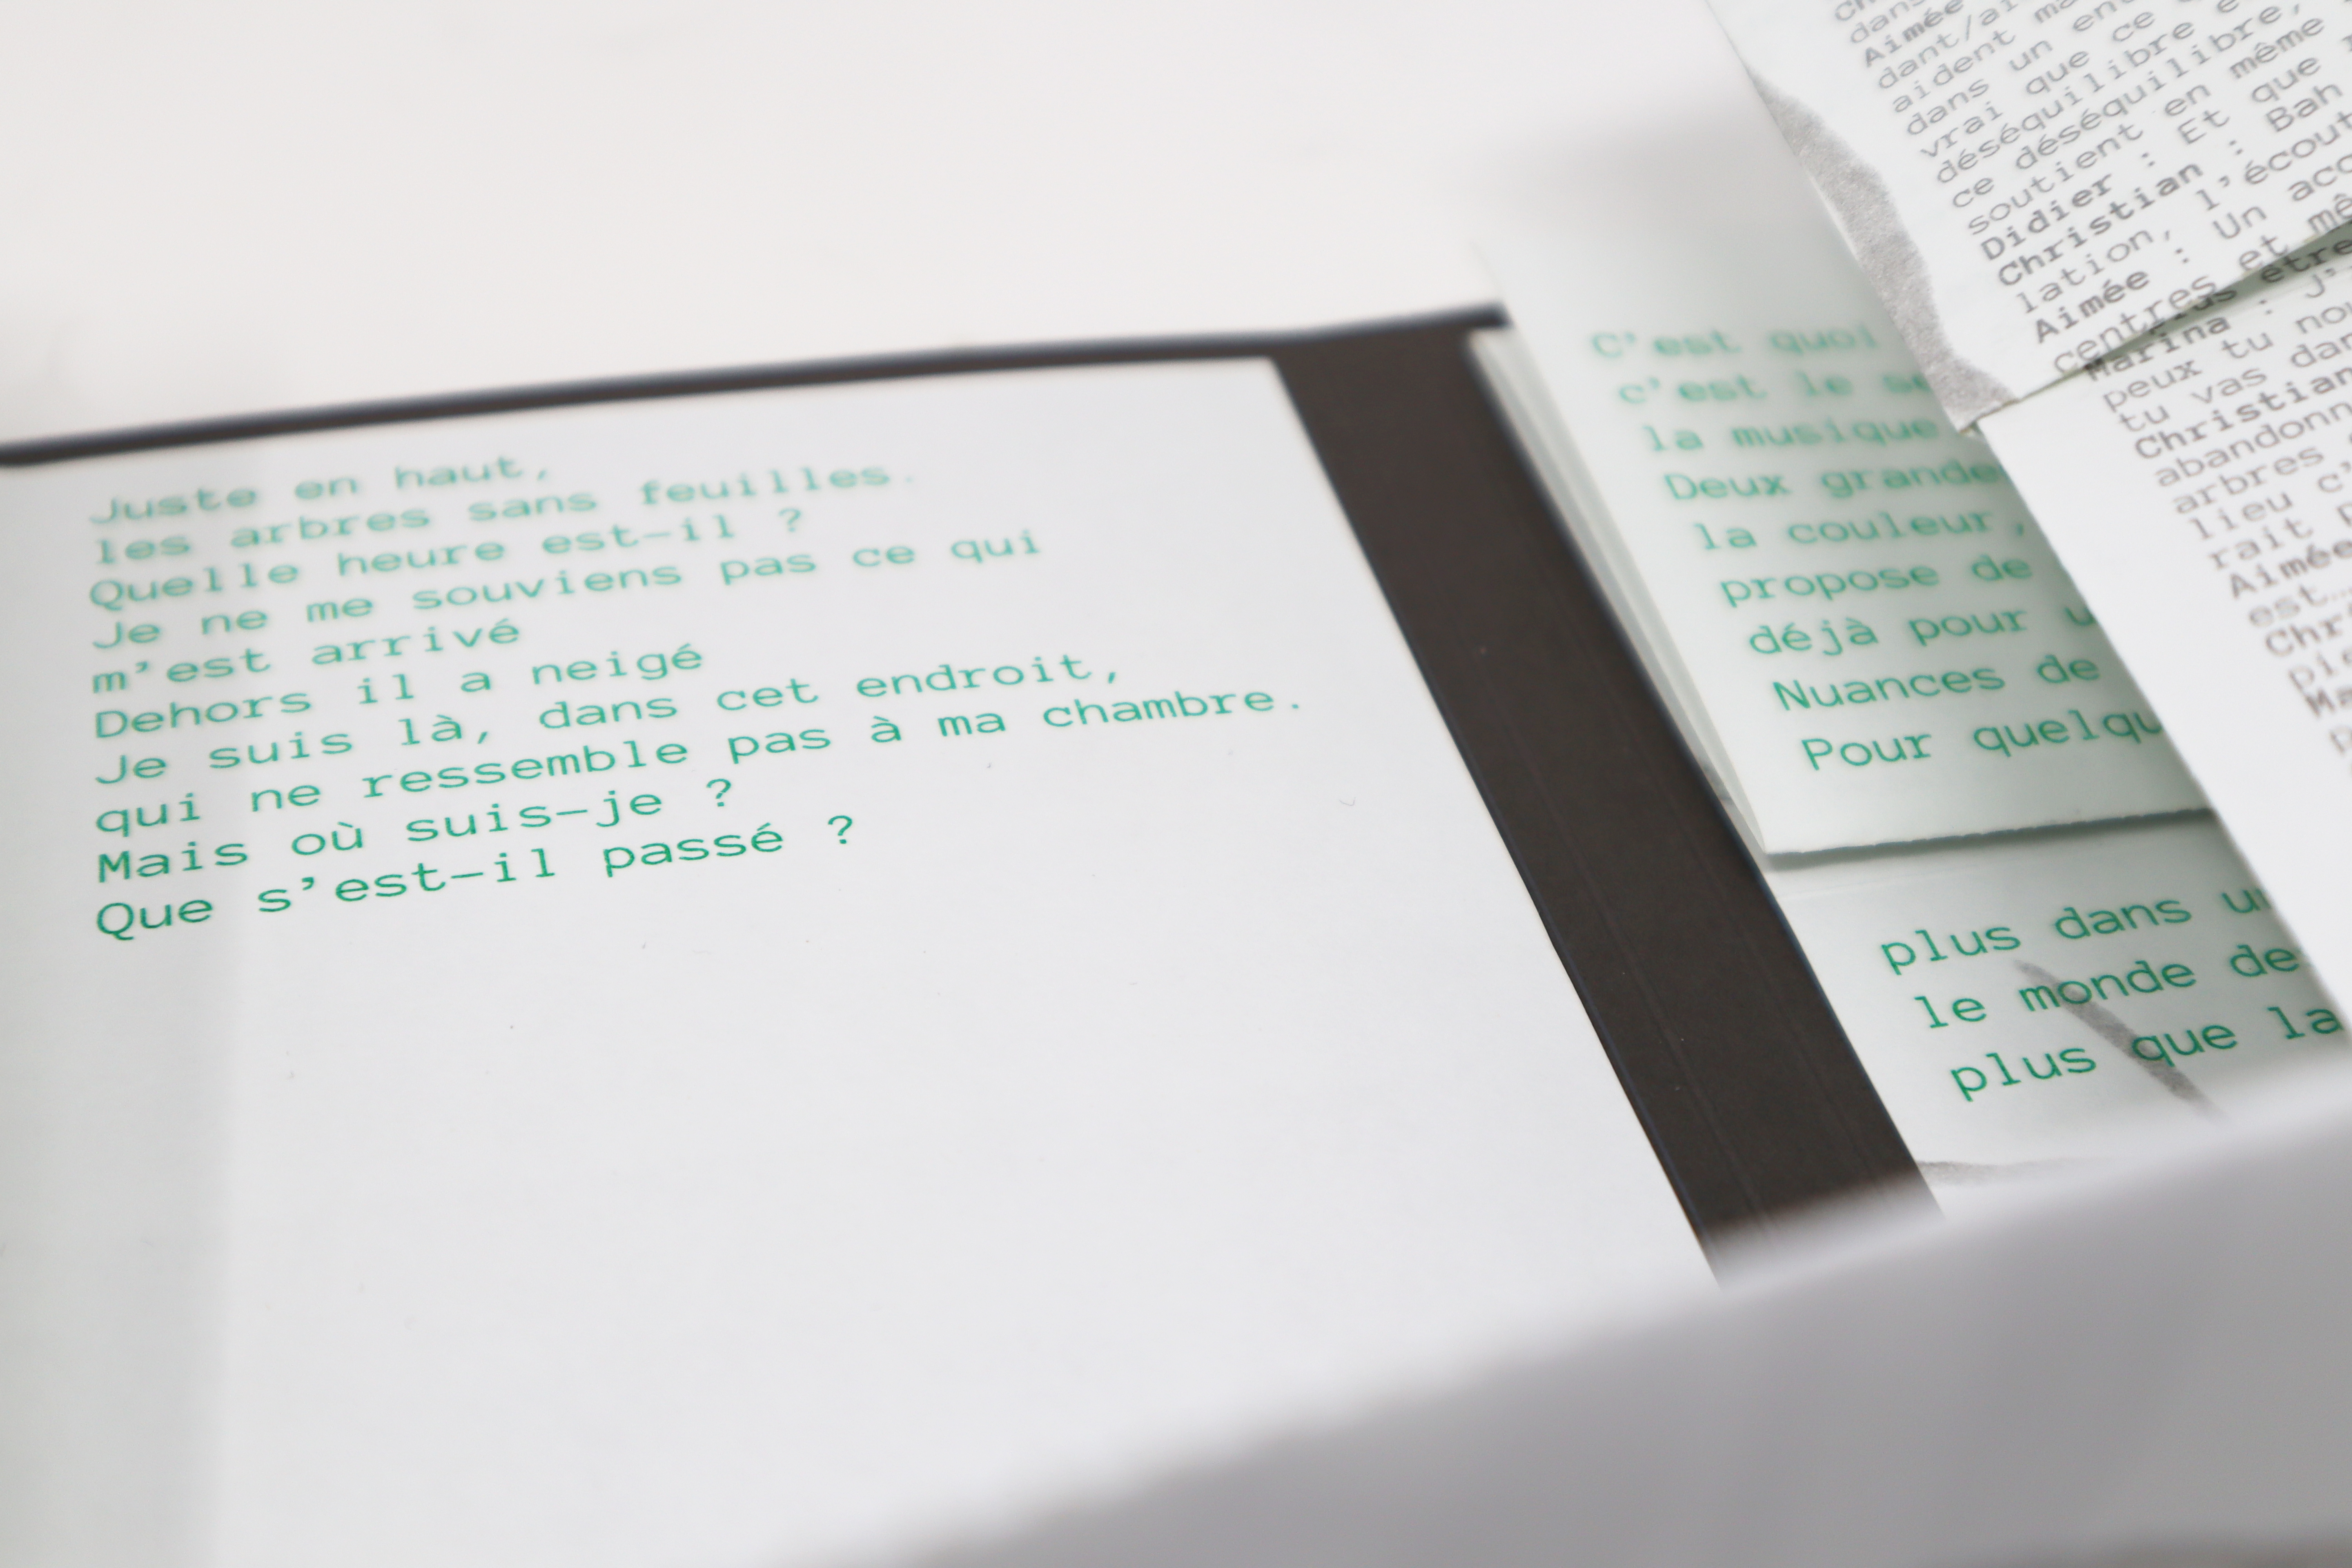 Juste en haut,
les arbres sans feuilles.
Quelle heure est-il ?
Je ne me souviens pas ce qui
m'est arrivé
Dehors il a neigé
Je suis là, dans cet endroit,
qui ne ressemble pas à ma chambre.
Mais où suis-je ?
Que s'est-il passé ?
C'est quoi
c'est le
la musique
Deux grande
la couleur,
propose de
déjà pour
Nuances de
Pour
plus dans
le monde de
plus que la
dans
Aimée
dant/
aident
dans un
vrai que ce
déséquilibre
ce déséquilibre,
soutient en même
Didier : Et que
Christian : Bah
lation,
Aimée : Un
centres et
Marina :
peux tu
tu vas
Christian
arbres
lieu
rait
Aimée
est